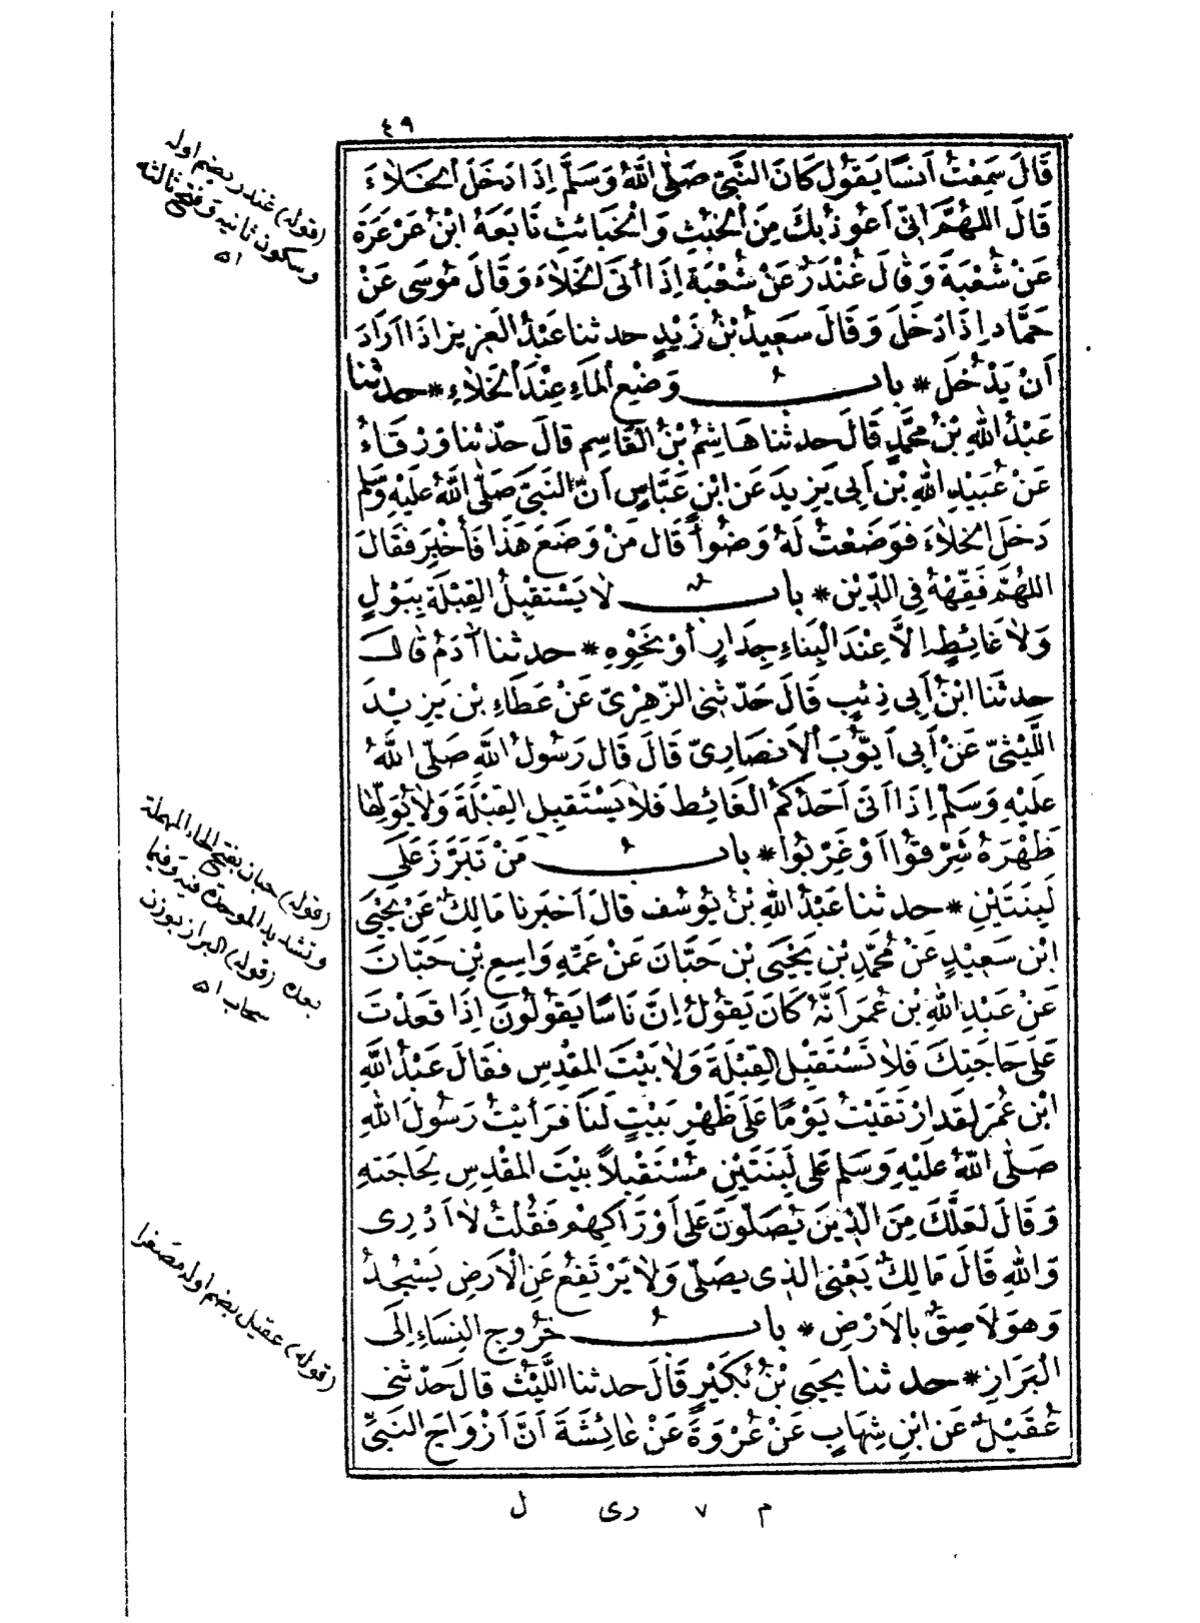 ٤٩
قَالَ سَمِعْتُ أَنَسًا يَقُولُ كَانَ النَّبِيُّ صَلَّى اللَّهُ وَسَلَّمَ إِذَا دَخَلَ الْخَلَاءَ
قَالَ اللهُمَّ إِنِّي أَعُوذُ بِكَ مِنَ الْخُبُثِ وَالْخَبَائِثِ تَابَعَهُ ابْنُ عَرْعَرَةَ
عَنْ شُعْبَةَ وَقَالَ غُنْدَرٌ عَنْ شُعْبَةَ إِذَا أَتَى الْخَلَاءَ وَقَالَ مُوسَى عَنْ
حَمَّادٍ إِذَا دَخَلَ وَقَالَ سَعِيدُ بْنُ زَيْدٍ حدثنا عَبْدُ الْعَزِيزِ إِذَا أَرَادَ
أَنْ يَدْخُلَ * بابُ وَضْعِ الْمَاءِ عِنْدَ الْخَلَاءِ * حدثنا
عَبْدُ اللهِ بْنُ مُحَمَّدٍ قَالَ حدثنا هَاشِمُ بْنُ الْقَاسِمِ قَالَ حدّثنا وَرْقَاءُ
عَنْ عُبَيْدِ اللهِ بْنِ أَبِي يَزِيدَ عَنِ ابْنِ عَبَّاسٍ أَنَّ النَّبِيَّ صَلَّى اللَّهُ عَلَيْهِ وَسَلَّم
دَخَلَ الْخَلَاءَ فَوَضَعْتُ لَهُ وَضُوأً قَالَ مَنْ وَضَعَ هَذَا فَأُخْبِرَ فَقَالَ
اللهُمَّ فَقِّهْهُ فِي الدِّيْنِ * بابٌ لَا يَسْتَقْبِلُ الْقِبْلَةَ بِبَوْلٍ
وَلَا غَائِطٍ إِلَّا عِنْدَ الْبِنَاءِ جِدَارٍ أَوْ نَحْوِهِ * حدثنا آدَمُ قَالَ
حدثَنَا ابْنُ أَبِي ذِئْبٍ قَالَ حَدّثَنِي الزُّهْرِيُّ عَنْ عَطَاءِ بْنِ يَزِيْدَ
اللَّيْثِيِّ عَنْ أَبِي أَيُّوبَ الْأَنْصَارِيِّ قَالَ قَالَ رَسُولُ اللهِ صَلَّى اللَّهُ
عَلَيْهِ وَسَلَّمَ إِذَا أَتَى أَحَدُكُمُ الْغَائِطَ فَلَا يَسْتَقْبِلِ الْقِبْلَةَ وَلَا يُوَلِّهَا
ظَهْرَهُ شَرِّقُوا أَوْ غَرِّبُوا * بابُ مَنْ تَبَرَّزَ عَلَى
لَبِنَتَيْنِ * حدثنا عَبْدُ اللهِ بْنُ يُوسُفَ قَالَ أَخْبَرَنَا مَالِكٌ عَنْ يَحْيَى
ابْنِ سَعِيْدٍ عَنْ مُحَمَّدِ بْنِ يَحْيَى بْنِ حَبَّانَ عَنْ عَمِّهِ وَاسِعِ بْنِ حَبَّانَ
عَنْ عَبْدِ اللهِ بْنِ عُمَرَ أَنَّهُ كَانَ يَقُولُ إِنَّ نَاسًا يَقُولُونَ إِذَا قَعَدْتَ
عَلَى حَاجَتِكَ فَلَا تَسْتَقْبِلِ الْقِبْلَةَ وَلَا بَيْتَ الْمَقْدِسِ فَقَالَ عَبْدُ اللَّهِ
ابْنُ عُمَرَ لَقَدِ ارْتَقَيْتُ يَوْمًا عَلَى ظَهْرِ بَيْتٍ لَنَا فَرَأَيْتُ رَسُولَ اللهِ
صَلَّى اللهُ عَلَيْهِ وَسَلَّمَ عَلَى لَبِنَتَيْنِ مُسْتَقْبِلاً بَيْتَ الْمَقْدِسِ لِحَاجَتِهِ
وَقَالَ لَعَلَّكَ مِنَ الَّذِينَ يُصَلّونَ عَلَى أَوْرَاكِهِمْ فَقُلْتُ لَا أَدْرِي
وَاللهِ قَالَ مَالِكٌ يَعْنِي الذي يصَلِّي وَلَا يَرْتَفِعُ عَنِ الْأَرْضِ يَسْجُدُ
وَهوَ لَاصِقٌ بِالْأَرْضِ * بابُ خُرُوجِ النِّسَاءِ إِلَى
الْبَرَازِ * حدثنا يَحْيَى بْنُ بُكَيْرٍ قَالَ حدثنا اللَّيْثُ قَالَ حَدّثَنِي
عُقَيْلٌ عَنِ ابْنِ شِهَابٍ عَنْ عُرْوَةَ عَنْ عَائِشَةَ أَنَّ أَزْوَاجَ النَّبِيِّ
(قوله) غندر بضم اوله
وسكون ثانيه وفتح ثالثه
اه
(قوله) حبان بفتح الحاء المهملة
وتشديد الموحدة فيه وفيما
بعده (قوله) البراز بوزن
سحاب اه
(قوله) عقيل بضم اوله مصغرا
م ٧ رى ل